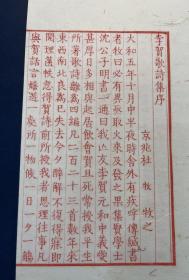 李賀歌詩集序
京兆杜 牧 牧之
大和五年十月中半夜時舍外有疾呼傳緘書
者牧曰必有異亟取火來及發之果集賢學士
沈公子明書一通曰我亡友李賀元和中義愛
甚厚日夕相與起居飲食賀且死嘗授我平生
所著歌詩離爲四編凡二百二十三首數年來
東西南北良爲已失去今夕醉解不復得寐即
閱理篋帙忽得賀詩前所授我者思理往事凡
與賀話言嬉遊一處所一物候一日一夕一觴